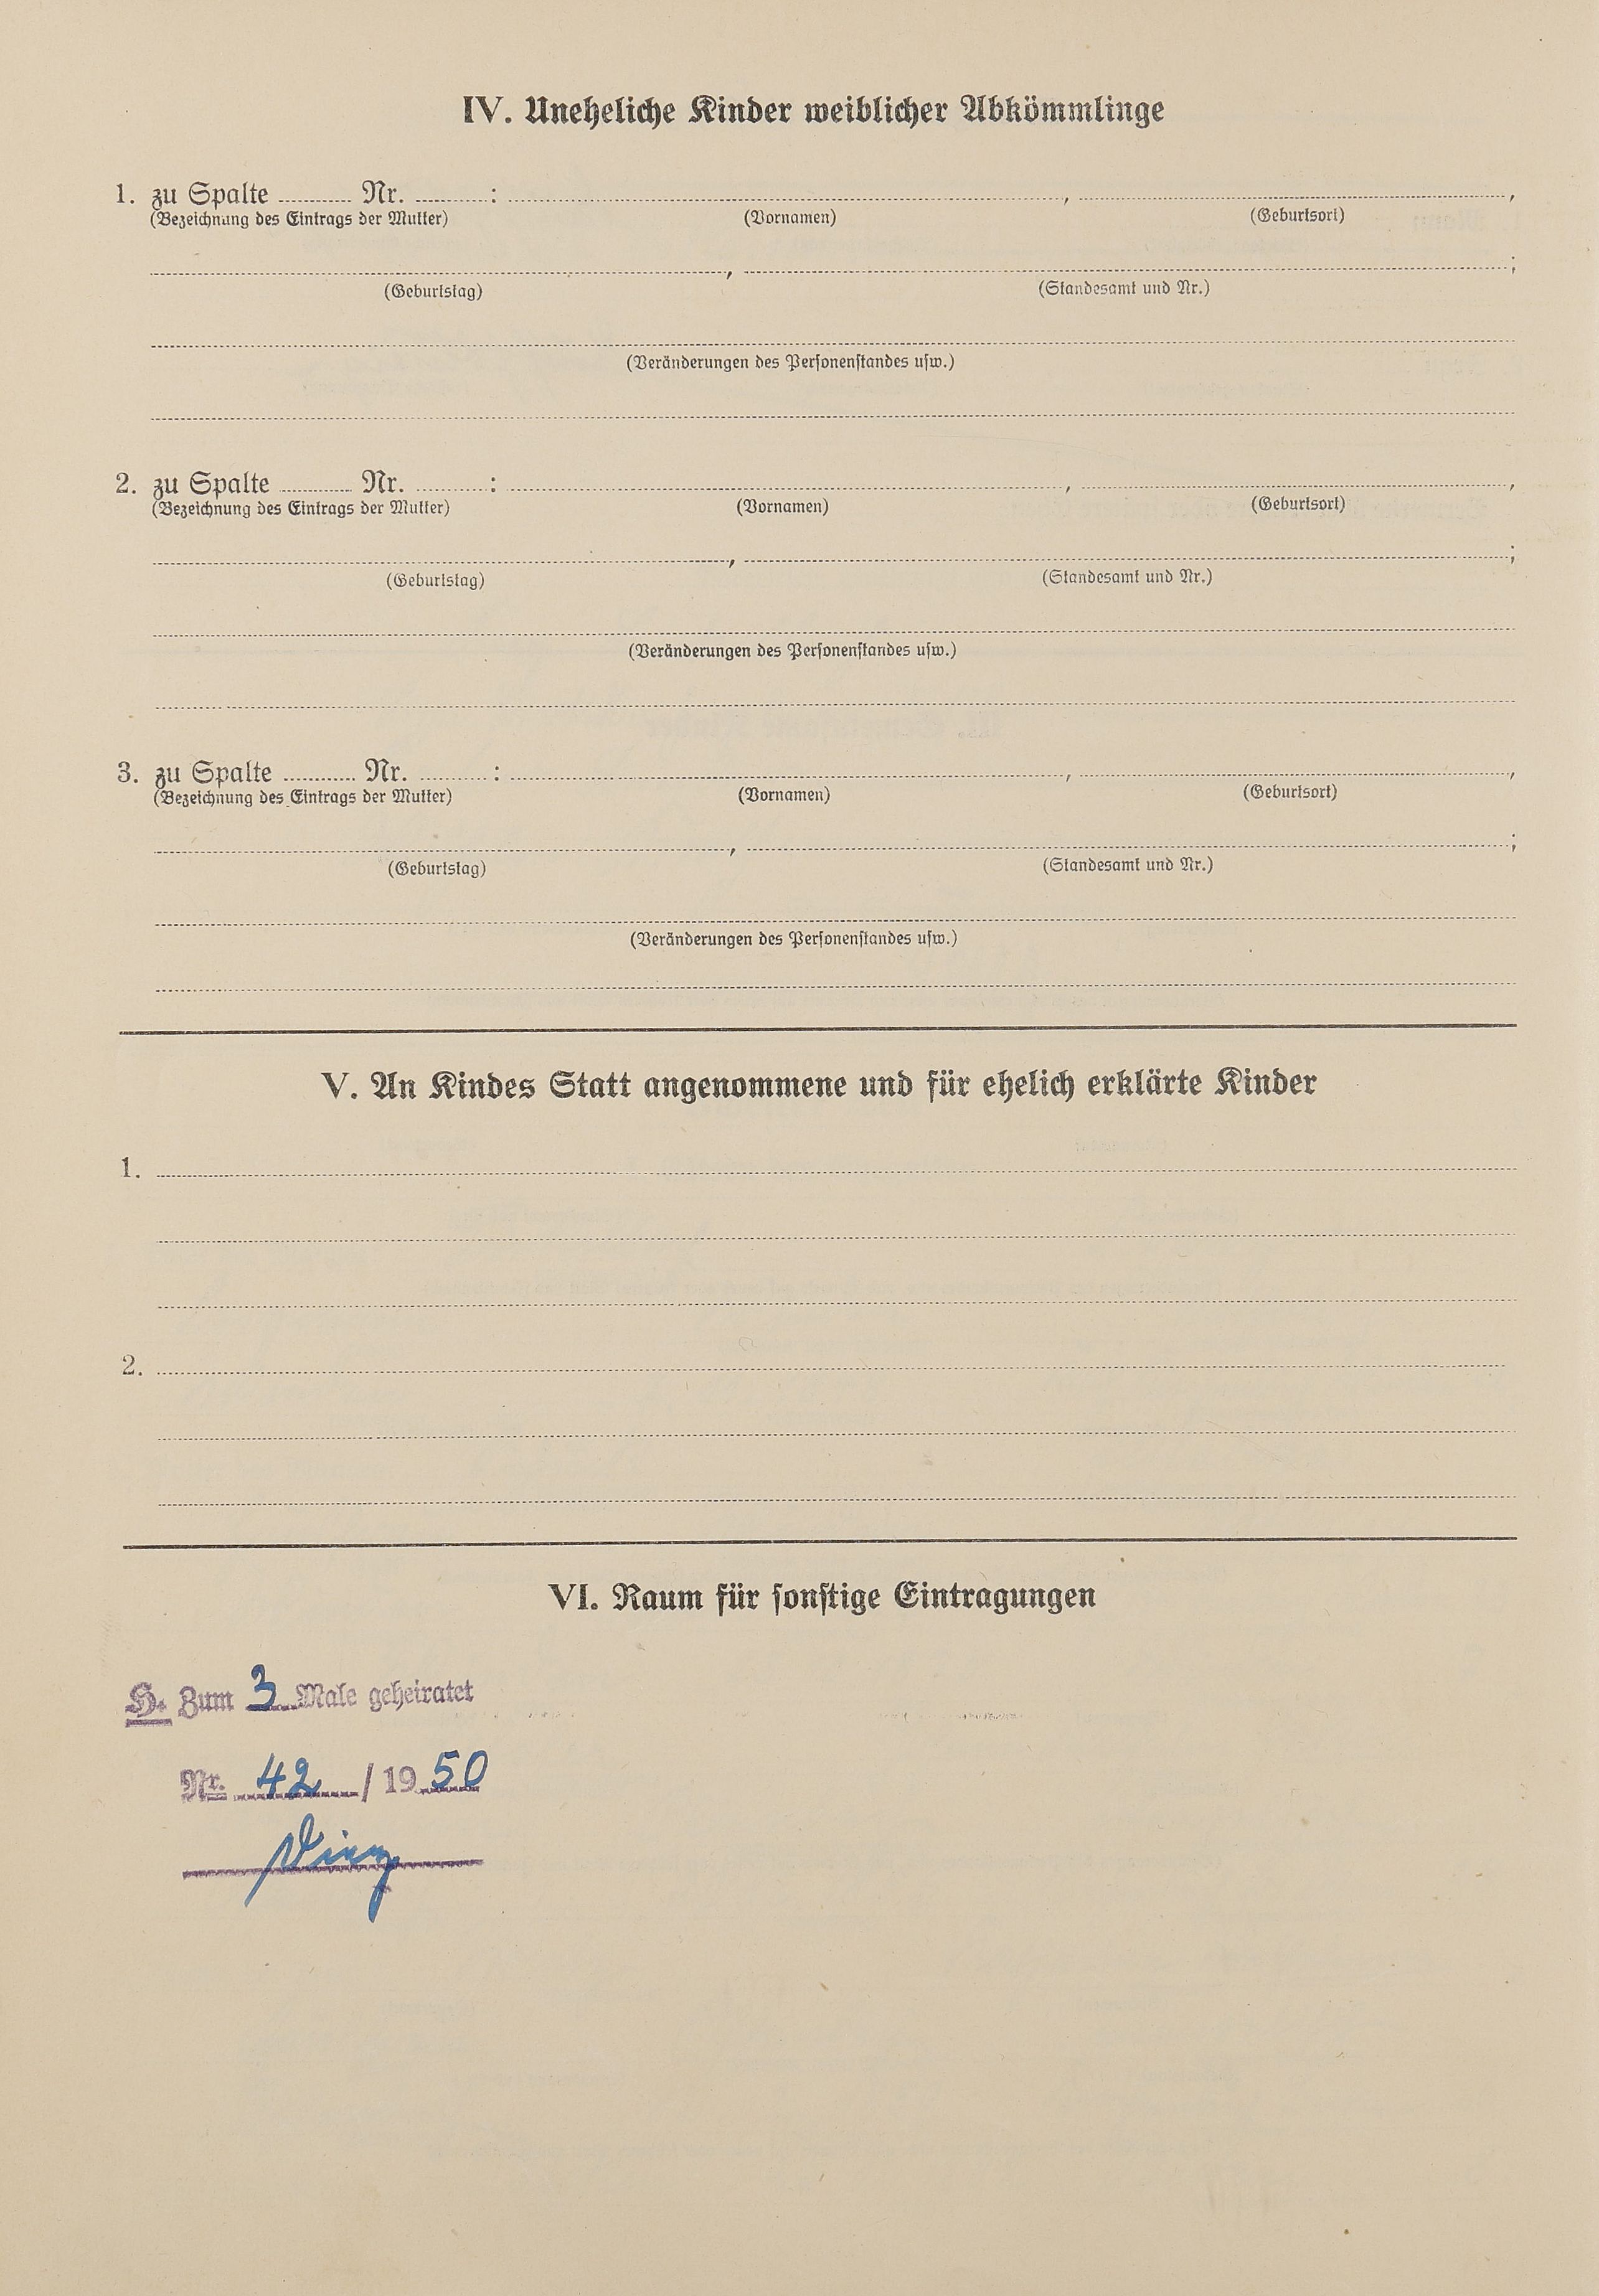 IV. Uneheliche Kinder weiblicher Abkömmlinge
1. zu Spalte ........ Nr. ........ : ........ , ........ ,
(Bezeichnung des Eintrags der Mutter) (Vornamen) (Geburtsort)
........ , ........ ;
(Geburtstag) (Standesamt und Nr.)
(Veränderungen des Personenstandes usw.)
2. zu Spalte ........ Nr. ........ : ........ , ........ ,
(Bezeichnung des Eintrags der Mutter) (Vornamen) (Geburtsort)
........ , ........ ;
(Geburtstag) (Standesamt und Nr.)
(Veränderungen des Personenstandes usw.)
3. zu Spalte ........ Nr. ........ : ........ , ........ ,
(Bezeichnung des Eintrags der Mutter) (Vornamen) (Geburtsort)
........ , ........ ;
(Geburtstag) (Standesamt und Nr.)
(Veränderungen des Personenstandes usw.)
V. An Kindes Statt angenommene und für ehelich erklärte Kinder
1.
2.
VI. Raum für sonstige Eintragungen
H. Zum 3 Male geheiratet
Nr. 42 / 1950